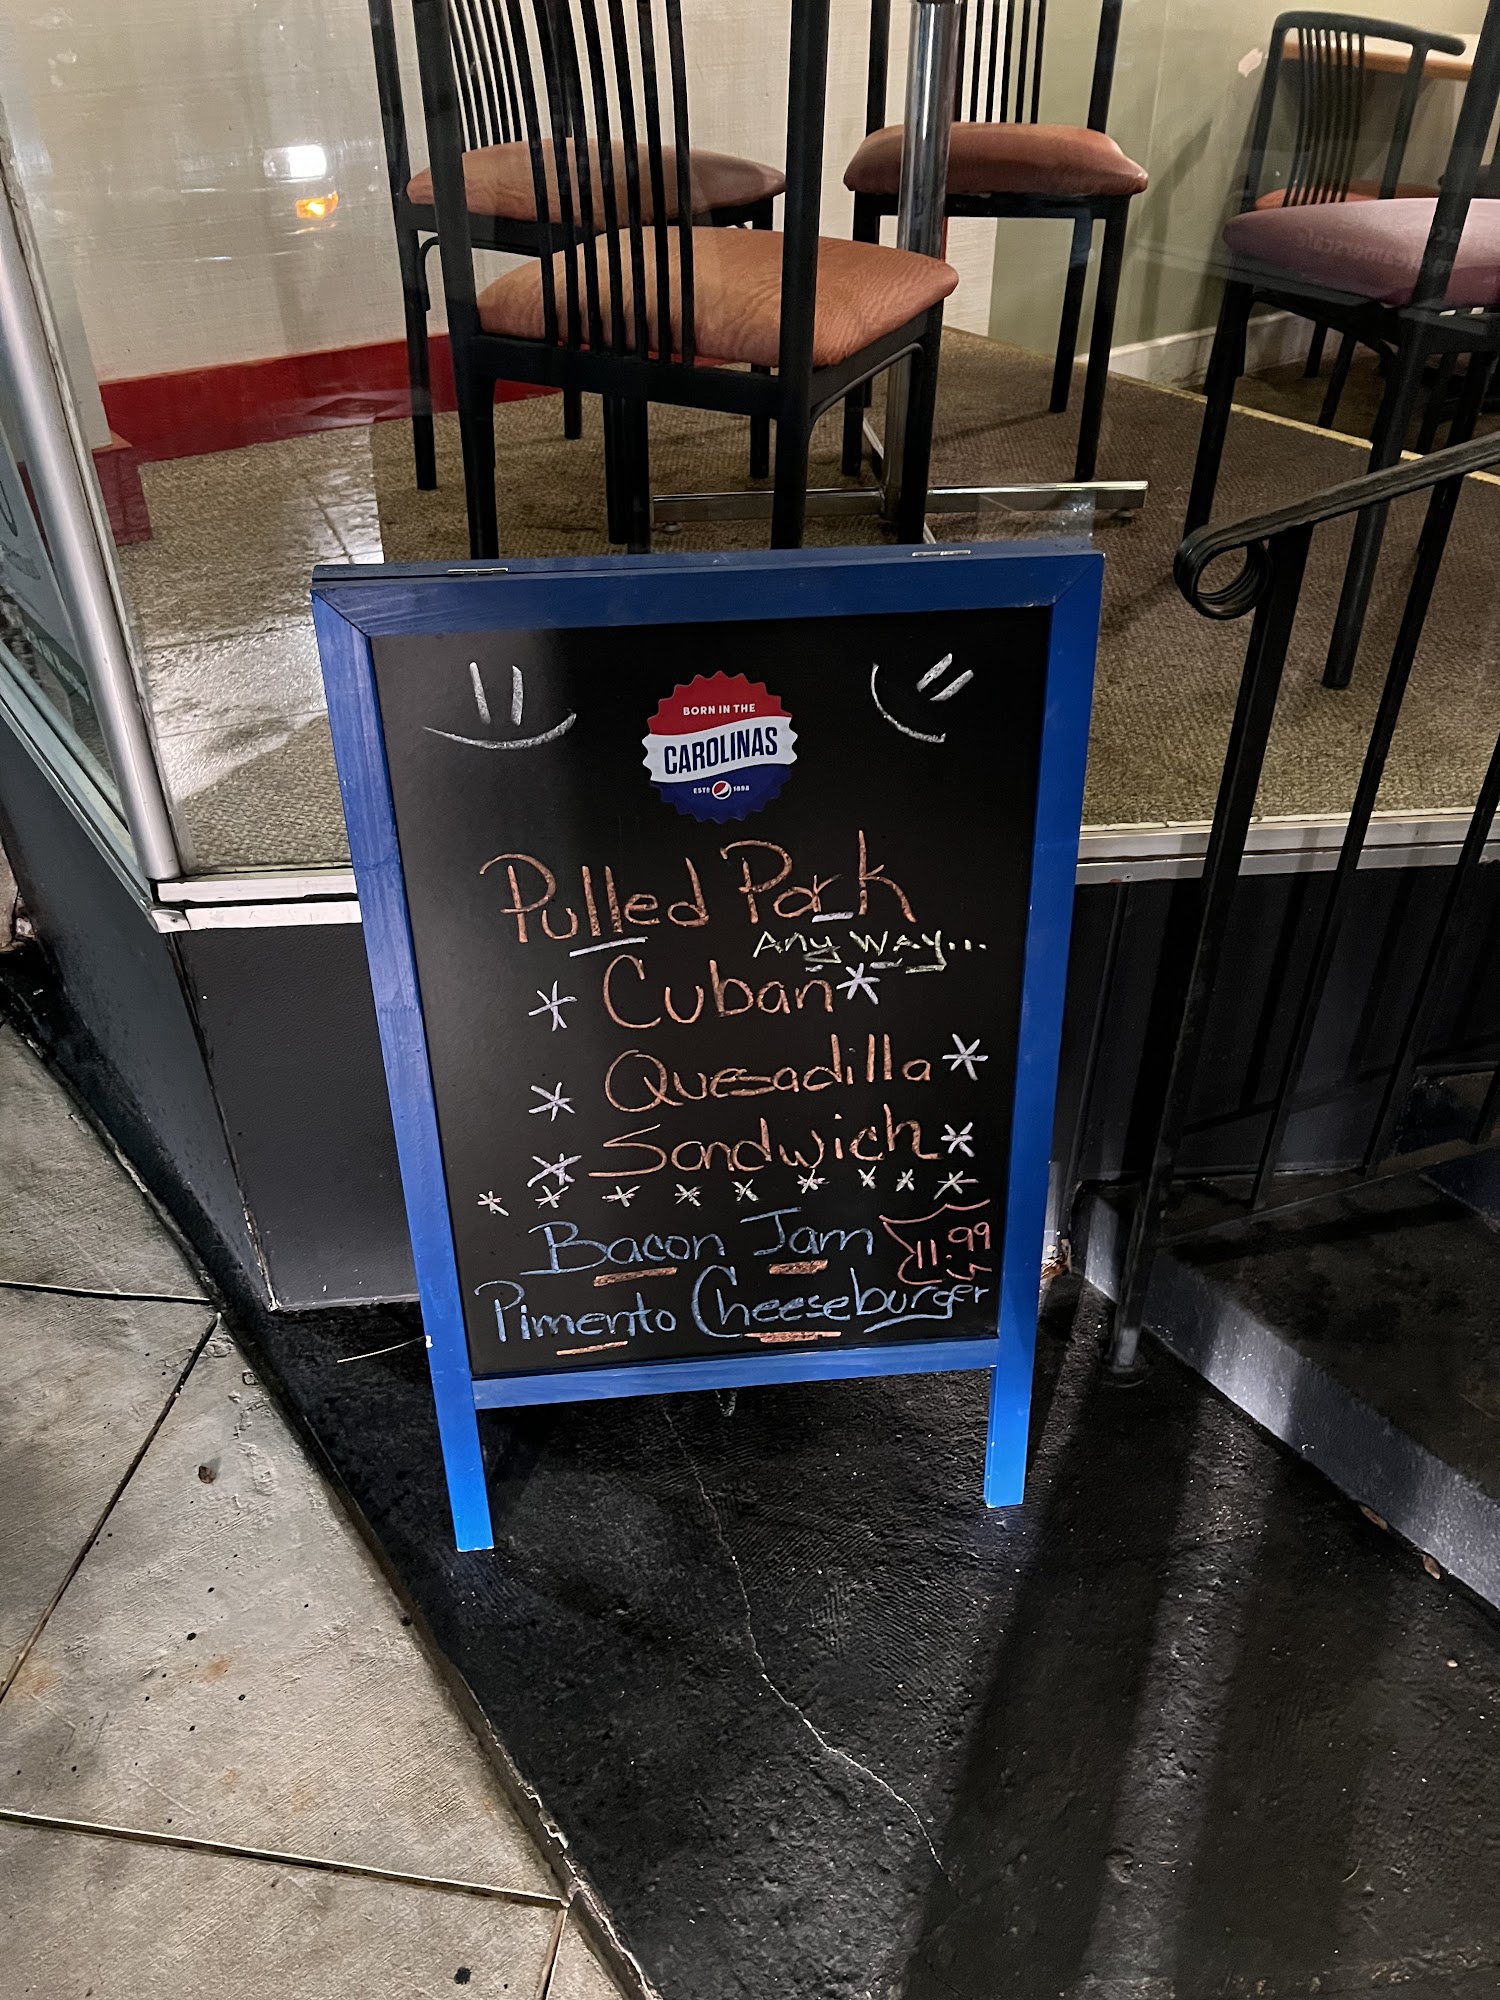 BORN IN THE
CAROLINAS
ESTD 1898
Pulled Pork
Any WAY...
* Cuban *
* Quesadilla *
* Sandwich *
* * * * * * * * *
Bacon Jam 11.99
Pimento Cheeseburger